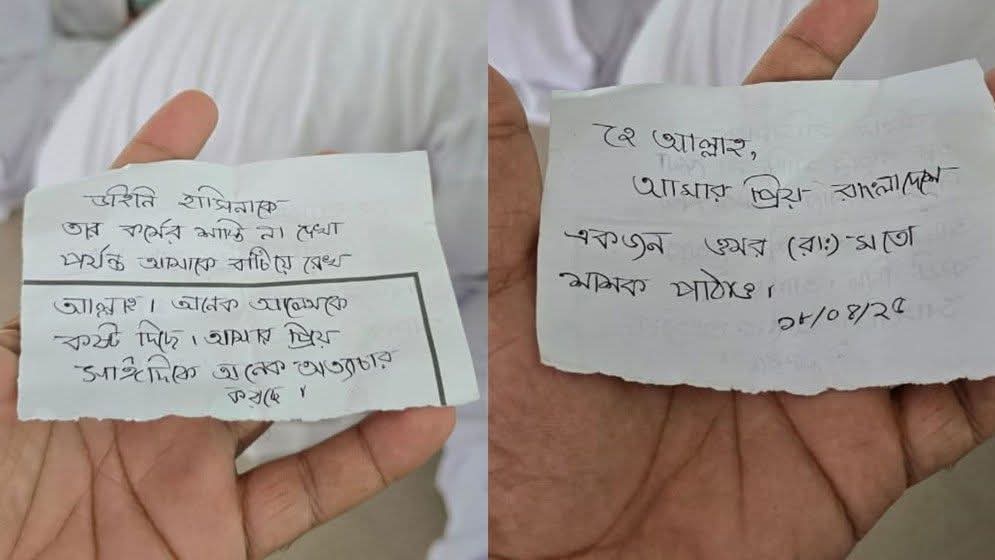 ডাইনি হাসিনাকে
তার কর্মের শাস্তি না দেখা
পর্যন্ত আমাকে বাচিয়ে রেখ
আল্লাহ। অনেক আলেমকে
কষ্ট দিছে। আমার প্রিয়
সাঈদিকে অনেক অত্যাচার
করছে।
হে আল্লাহ,
আমার প্রিয় বাংলাদেশে
একজন ওমর (রাঃ)-মতো
শাসক পাঠাও।
১৮/০৪/২৫